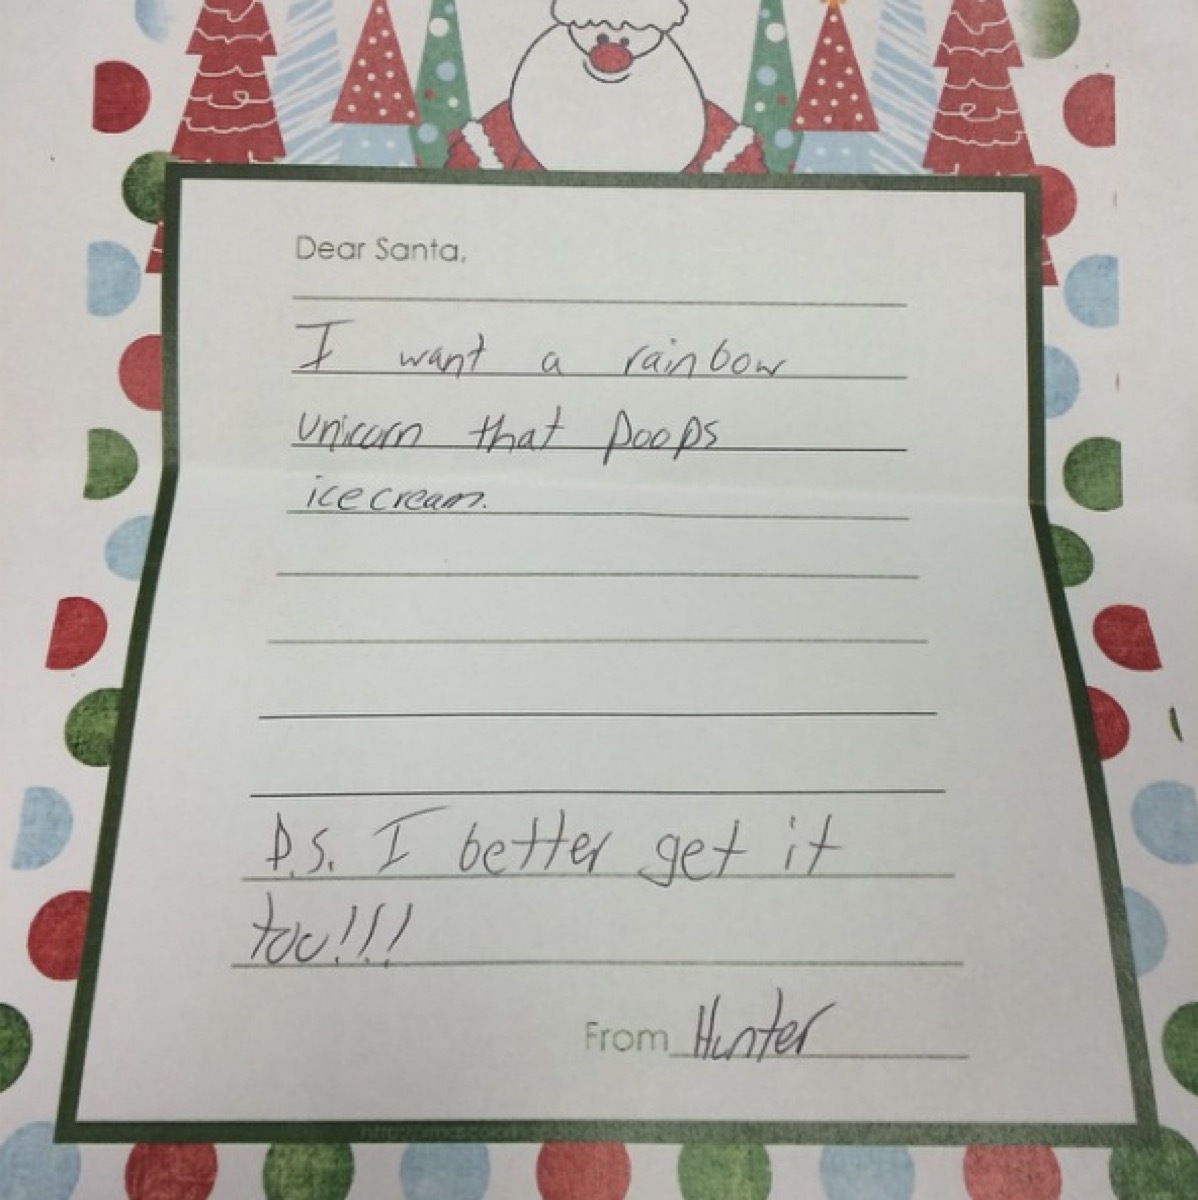 Dear Santa,
I want a rainbow
unicorn that poops
icecream.
P.S. I better get it
too!!!
From Hunter